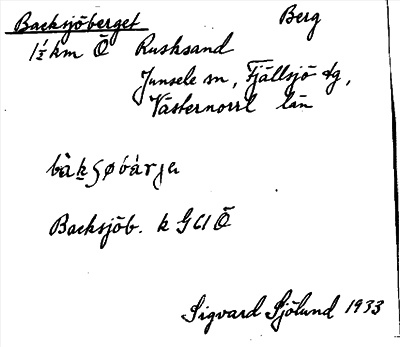 Backsjöberget Berg
1½ km Ö Rusksand
Junsele sn, Fjällsjö tg,
Västernorrl län
bàkʂøbárja
Backsjöb. k GCI Ö
Sigvard Sjölund 1933